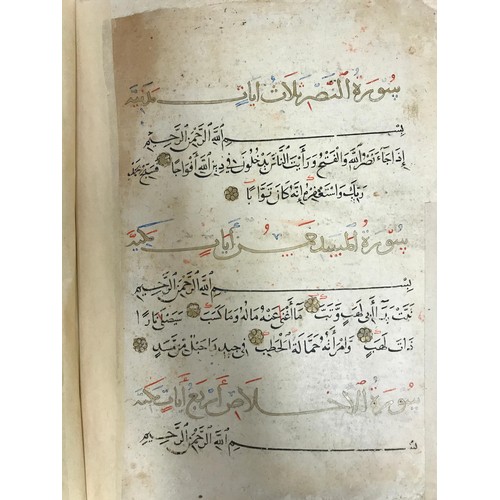 سورة النصر ثلاث آيات مدنية
بسم الله الرحمن الرحيم
إذا جاء نصر الله والفتح ورأيت الناس يدخلون في دين الله أفواجا فسبح بحمد
ربك واستغفره إنه كان توابا
سورة آيات مكية
بسم الله الرحمن الرحيم
تبت يدا أبي لهب وتب ما أغنى عنه ماله وما كسب سيصلى نارا
ذات لهب وامرأته حمالة الحطب في جيدها حبل من مسد
سورة الإخلاص أربع آيات مكية
بسم الله الرحمن الرحيم